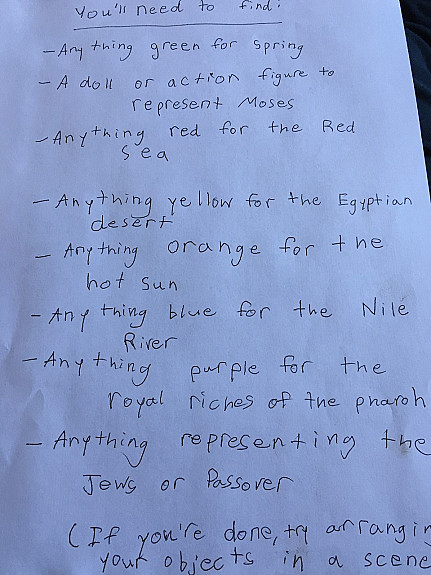 You'll need to find:
- Any thing green for spring
- A doll or action figure to
represent Moses
- Anything red for the Red
sea
- Anything yellow for the Egyptian
desert
- Anything orange for the
hot sun
- Any thing blue for the Nile
River
- Any thing purple for the
royal riches of the pharoh
- Anything representing the
Jews or Passover
(If you're done, try arrangin
your objects in a scene